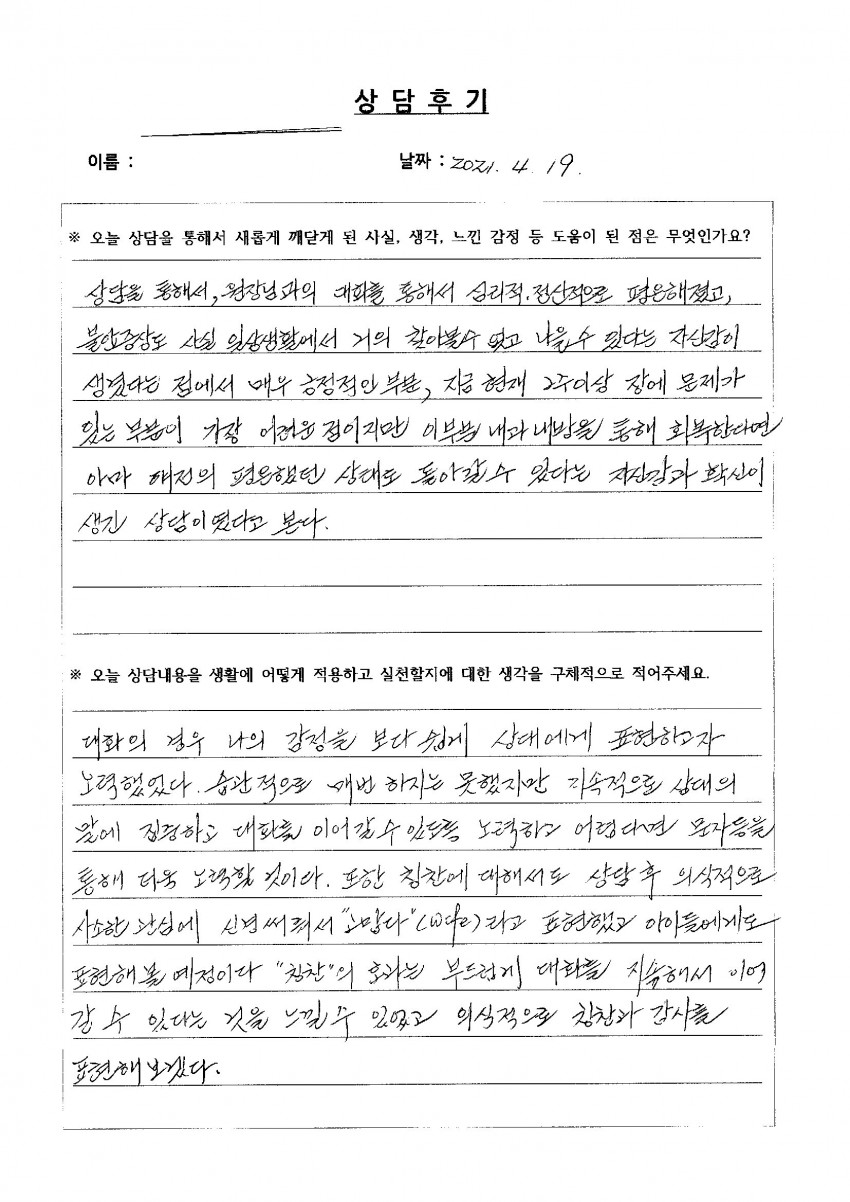 상 담 후 기
이름 :
날짜 : 2021. 4. 19.
※ 오늘 상담을 통해서 새롭게 깨닫게 된 사실, 생각, 느낀 감정 등 도움이 된 점은 무엇인가요?
상담을 통해서, 원장님과의 대화를 통해서 심리적.정신적으로 평온해졌고,
불안증상도 사실 일상생활에서 거의 찾아볼수 없고 나을수 있다는 자신감이
생겼다는 점에서 매우 긍정적인 부분, 지금 현재 2주이상 장에 문제가
있는 부분이 가장 어려운 점이지만 이부분 내과 내방을 통해 회복한다면
아마 예전의 평온했던 상태로 돌아갈수 있다는 자신감과 확신이
생긴 상담이였다고 본다.
※ 오늘 상담내용을 생활에 어떻게 적용하고 실천할지에 대한 생각을 구체적으로 적어주세요.
대화의 경우 나의 감정을 보다 쉽게 상대에게 표현하고자
노력했었다. 습관적으로 매번 하지는 못했지만 지속적으로 상대의
말에 집중하고 대화를 이어갈수 있도록 노력하고 어렵다면 문자등을
통해 더욱 노력할 것이다. 또한 칭찬에 대해서도 상담 후 의식적으로
사소한 관심에 신경써줘서 "고맙다" 라고 표현했고 아이들에게도
표현해볼 예정이다 "칭찬"의 효과는 부드럽게 대화를 지속해서 이어
갈 수 있다는 것을 느낄수 있었고 의식적으로 칭찬과 감사를
표현해보겠다.